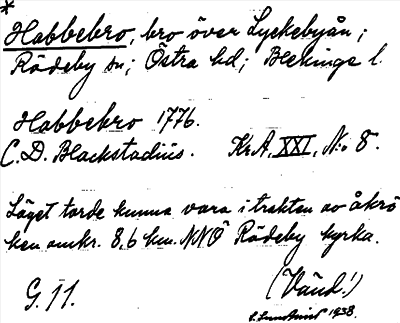 *
Habbebro, bro över Lyckebyån;
Rödeby sn; Östra hd; Blekinge l.
Habbebro 1776.
C. D. Blackstadius. Kr. A. XXI. N:o 8.
Läget torde kunna vara i trakten av åkrö
ken omkr. 8,6 km. NNÖ Rödeby kyrka.
G. 11. (Vänd!)
1938.